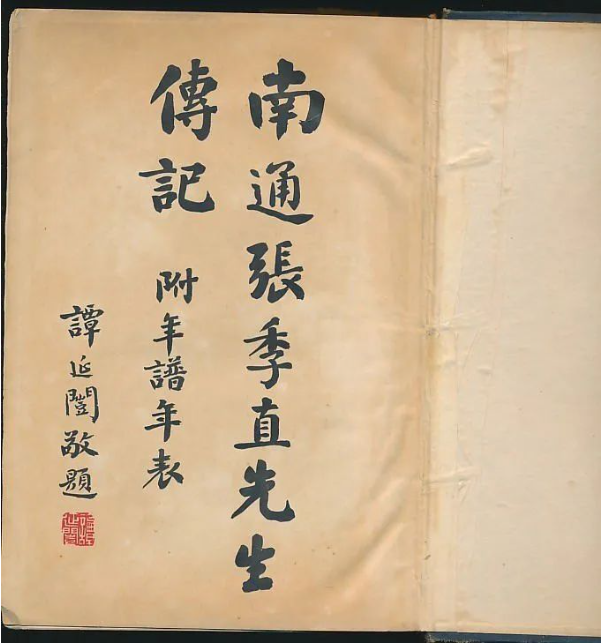 南通張季直先生
傳記
附年譜年表
譚延闓敬題